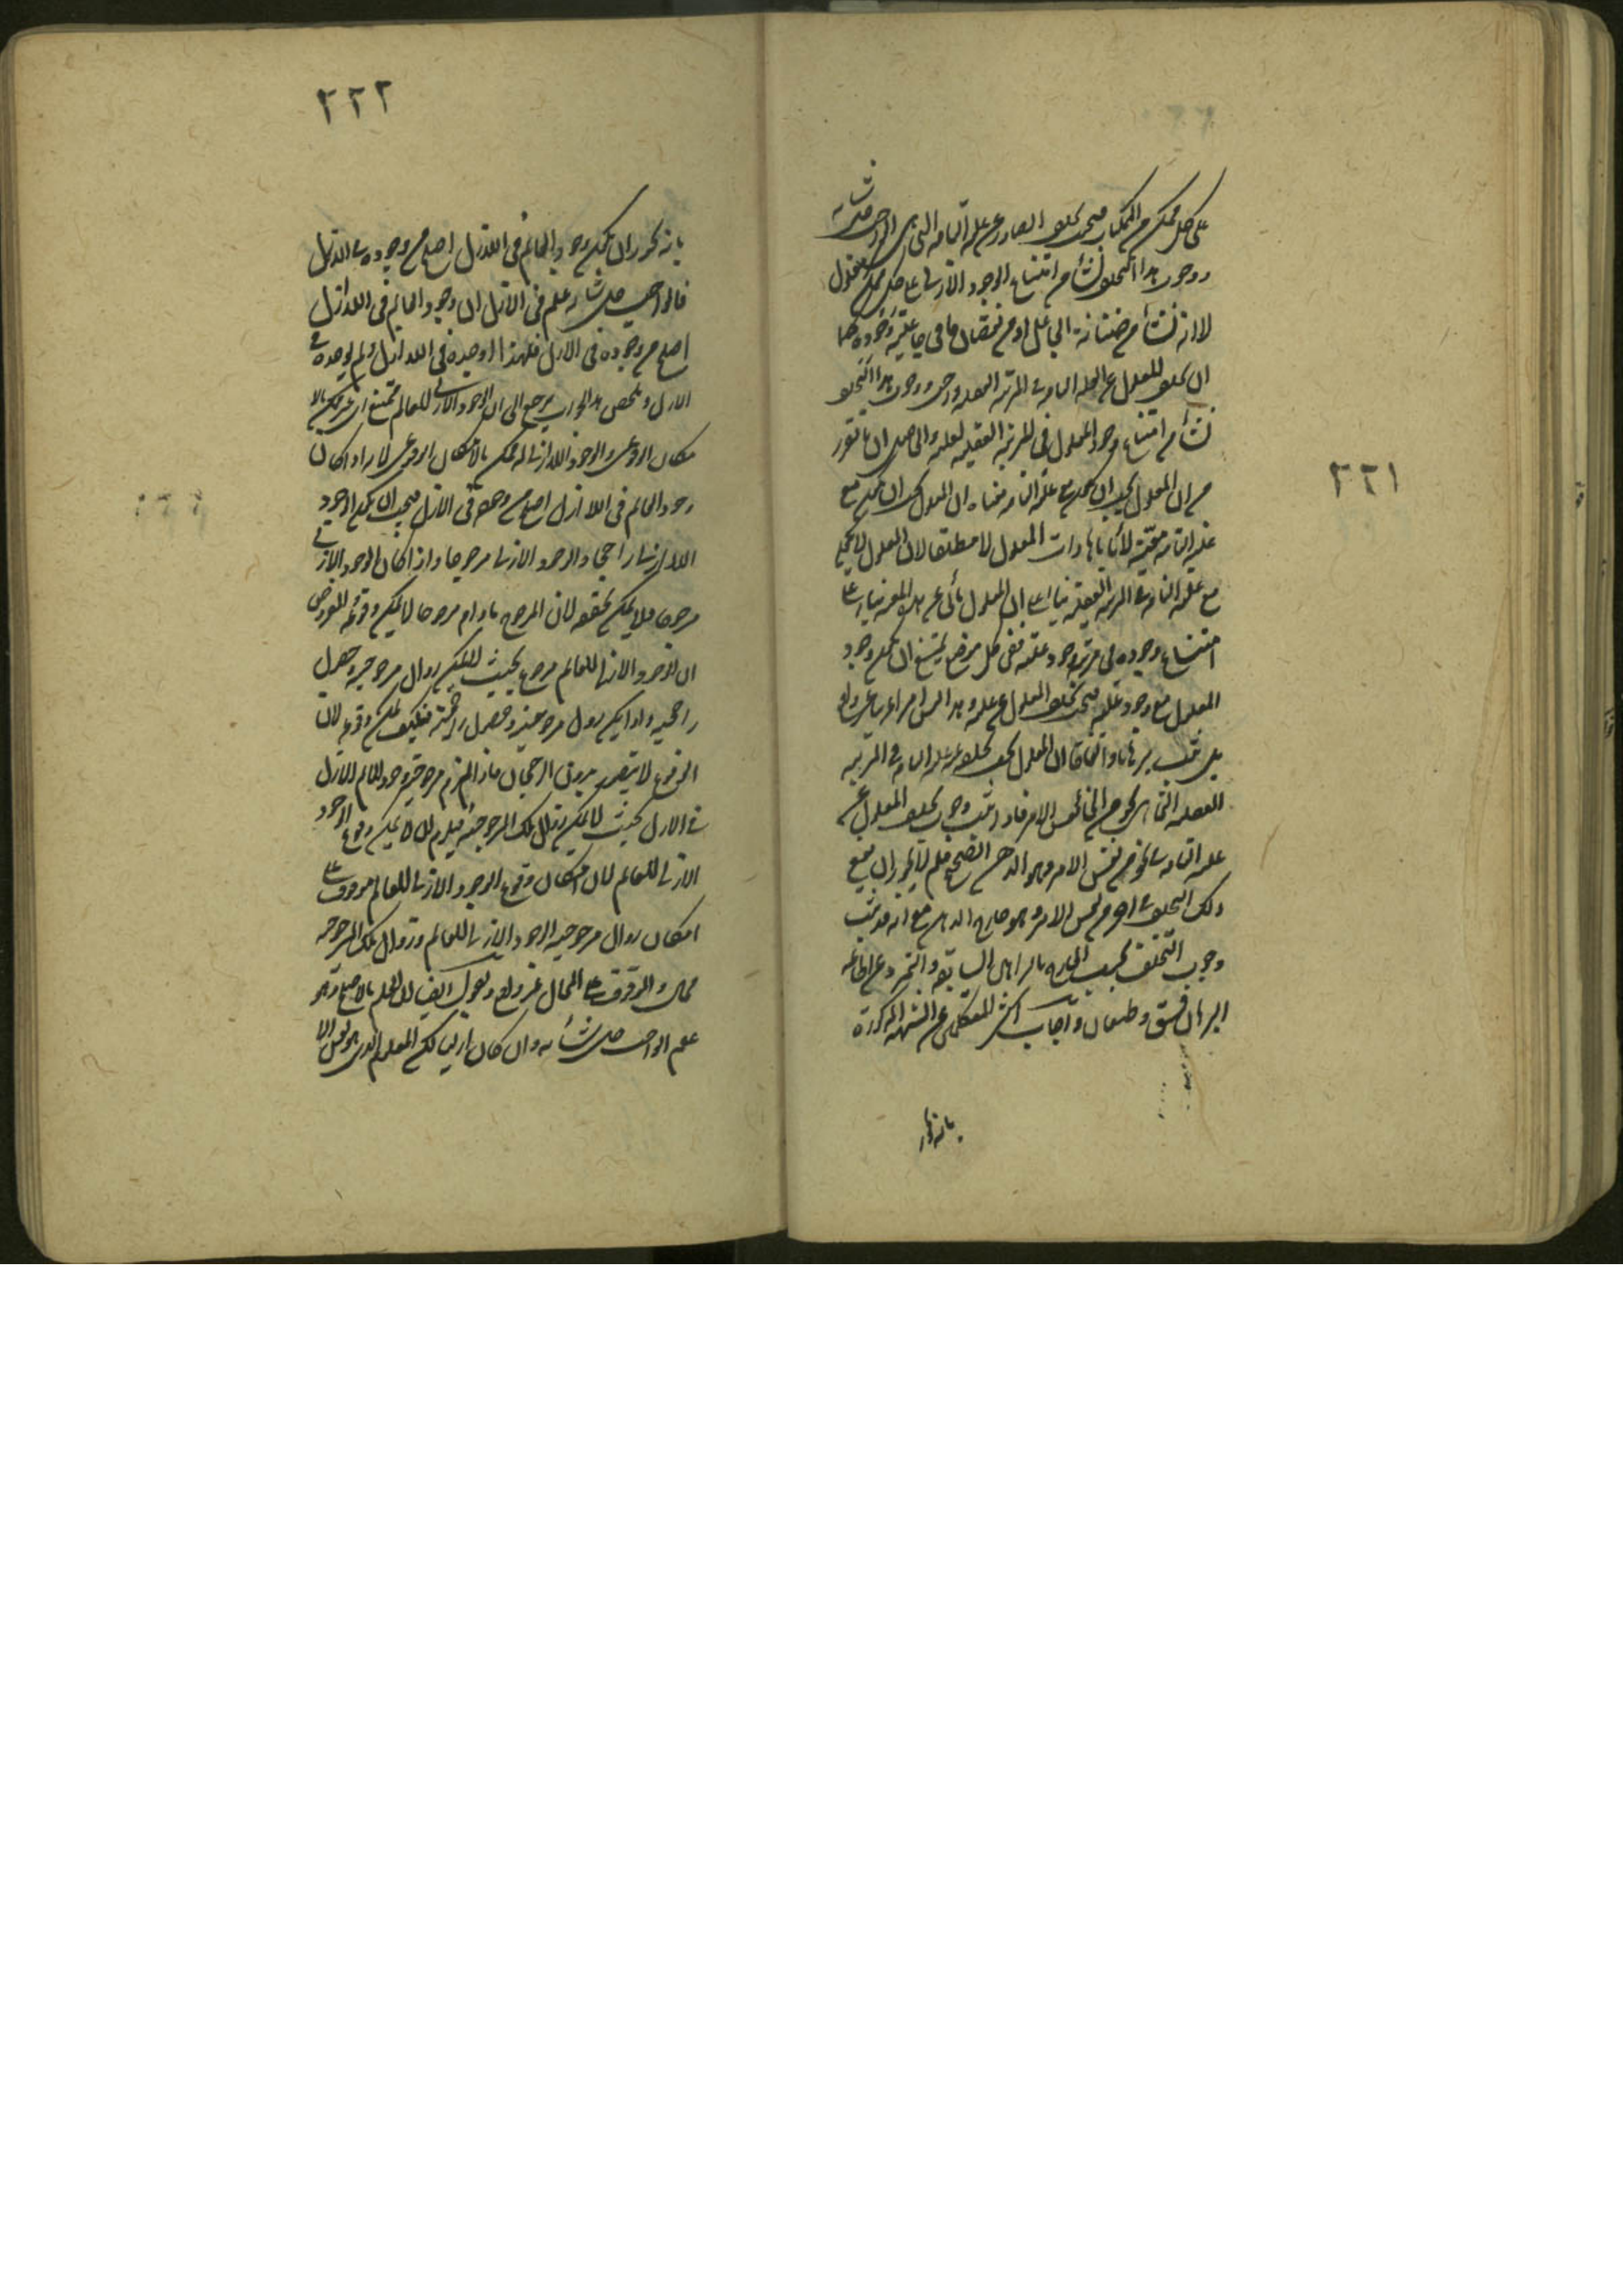 ٢٢١
على كل ممكن من الممكنات فيجب تخلف الصادر عن علته التامة التي هي الواجب جل شانه
ووجوب هذا التخلف نشأ من امتناع الوجود الازلي على كل ممكن معلول
لا انه نشأ من ضنانة الجاعل او من نقصان ما في جاعليته وجوده كما
ان تخلف المعلول عن العلة التامة في المرتبة العقلية واجب ووجوب هذا التخلف
نشأ من امتناع وجود المعلول في المرتبة العقلية لعلته والحاصل ان ما تقرر
من ان المعلول يجب ان يكون مع علته التامة معناه ان المعلول يجب ان يكون مع
علته التامة معية لا يأباها ذات المعلول لا مطلقا لان المعلول لا يجب
مع علته التامة في المرتبة العقلية بناء على ان المعلول يأبى عن هذه المعية بناء على
امتناع وجوده في مرتبة وجود علته ففي كل موضع يمتنع ان يكون وجود
المعلول مع وجود علته فيجب تخلف المعلول عن علته وهذا ليس امرا غريبا
بل ثبت برهانا واتفاقا ان المعلول يجب تخلفه عن علته التامة في المرتبة
العقلية التي هي نحو من انحاء نفس الامر فاذا ثبت وجوب تخلف المعلول عن
علته التامة في نحو من نفس الامر وهو الدهر الصحيح فلم لا يجوز ان يقع
ذلك التخلف في نحو آخر من نفس الامر وهو خارج الدهر مع انه قد ثبت
وجوب التخلف بحسب الخارج بالبراهين السابقة والتمرد عن اطاعة
البرهان فسق وطغيان واجاب اكثر المتكلمين عن الشبهة المذكورة
بانه يجوز
٢٢٢
بانه يجوز ان يكون وجود العالم في اللاازل اصلح من وجوده في الازل
فالواجب جل شانه علم في الازل ان وجود العالم في اللاازل
اصلح من وجوده في الازل فلهذا اوجده في اللاازل ولم يوجده في
الازل وملخص هذا الجواب يرجع الى ان الوجود الازلي للعالم ممتنع غير ممكن بالا
مكان الوقوعي والوجود اللاازلي له ممكن بالامكان الوقوعي لانه اذا كان
وجود العالم في اللاازل اصلح من وجوده في الازل فيجب ان يكون الوجود
اللاازلي راجحا والوجود الازلي مرجوحا واذا كان الوجود الازلي
مرجوحا فلا يمكن تحققه لان المرجوح مادام مرجوحا لا يمكن وقوعه المفروض
ان الوجود الازلي للعالم مرجوح بحيث لا يمكن زوال مرجوحيته وحصول
راجحيته واذا لم يكن زوال مرجوحيته وحصول راجحيته فكيف يمكن وقوعه لان
الوقوع لا يتصور بدون الرجحان فاذا لزم مرجوحية وجود العالم الازلي
في الازل بحيث لا يمكن زوال تلك المرجوحية فيلزم ان لا يمكن وقوع الوجود
الازلي للعالم لان امكان وقوع الوجود الازلي للعالم موقوف على
امكان زوال مرجوحية الوجود الازلي للعالم وزوال تلك المرجوحية
محال والموقوف على المحال غير واقع ونقول ايضا ان العلم بالاصلح وهو
علم الواجب جل شأنه وان كان ازليا لكن المعلوم الذي هو نفس الا